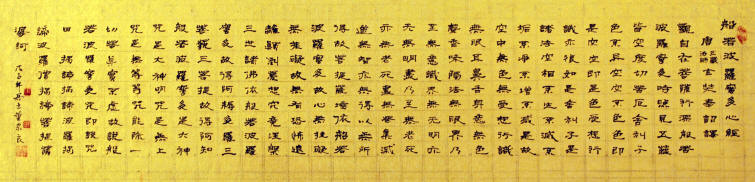 般若波羅蜜多心經
唐三藏法師玄奘奉詔譯
觀自在菩薩行深般若
波羅蜜多時照見五蘊
皆空度一切苦厄舍利子
色不異空空不異色色即
是空空即是色受想行
識亦復如是舍利子是
諸法空相不生不滅不
垢不淨不增不減是故
空中無色無受想行識
無眼耳鼻舌身意無色
聲香味觸法無眼界乃
至無意識界無無明亦
無無明盡乃至無老死
亦無老死盡無苦集滅
道無智亦無得以無所
得故菩提薩埵依般若
波羅蜜多故心無罣礙
無罣礙故無有恐怖遠
離顛倒夢想究竟涅槃
三世諸佛依般若波羅
蜜多故得阿耨多羅三
藐三菩提故知
般若波羅蜜多是大神
咒是大明咒是無上
咒是無等等咒能除一
切苦真實不虛故說般
若波羅蜜多咒即說咒
曰 揭諦揭諦波羅揭
諦波羅僧揭諦菩提薩
婆訶 戊子年